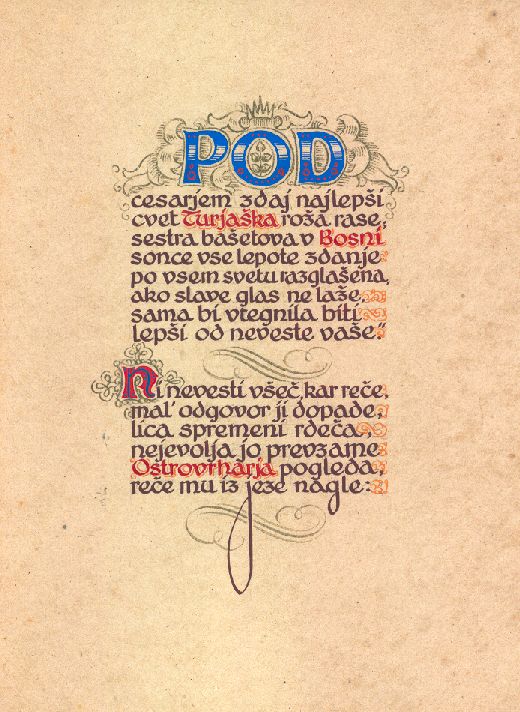 POD
cesarjem zdaj najlepši
cvet Turjaška roža rase,
sestra bašetova v Bosni
sonce vse lepote zdanje
po vsem svetu razglašena,
ako slave glas ne laže,
sama bi vtegnila biti
lepši od neveste vaše."
Ni nevesti všeč, kar reče,
mal' odgovor ji dopade,
lica spremeni rdeča,
nejevolja jo prevzame
Ostrovrharja pogleda,
reče mu iz jeze nagle: